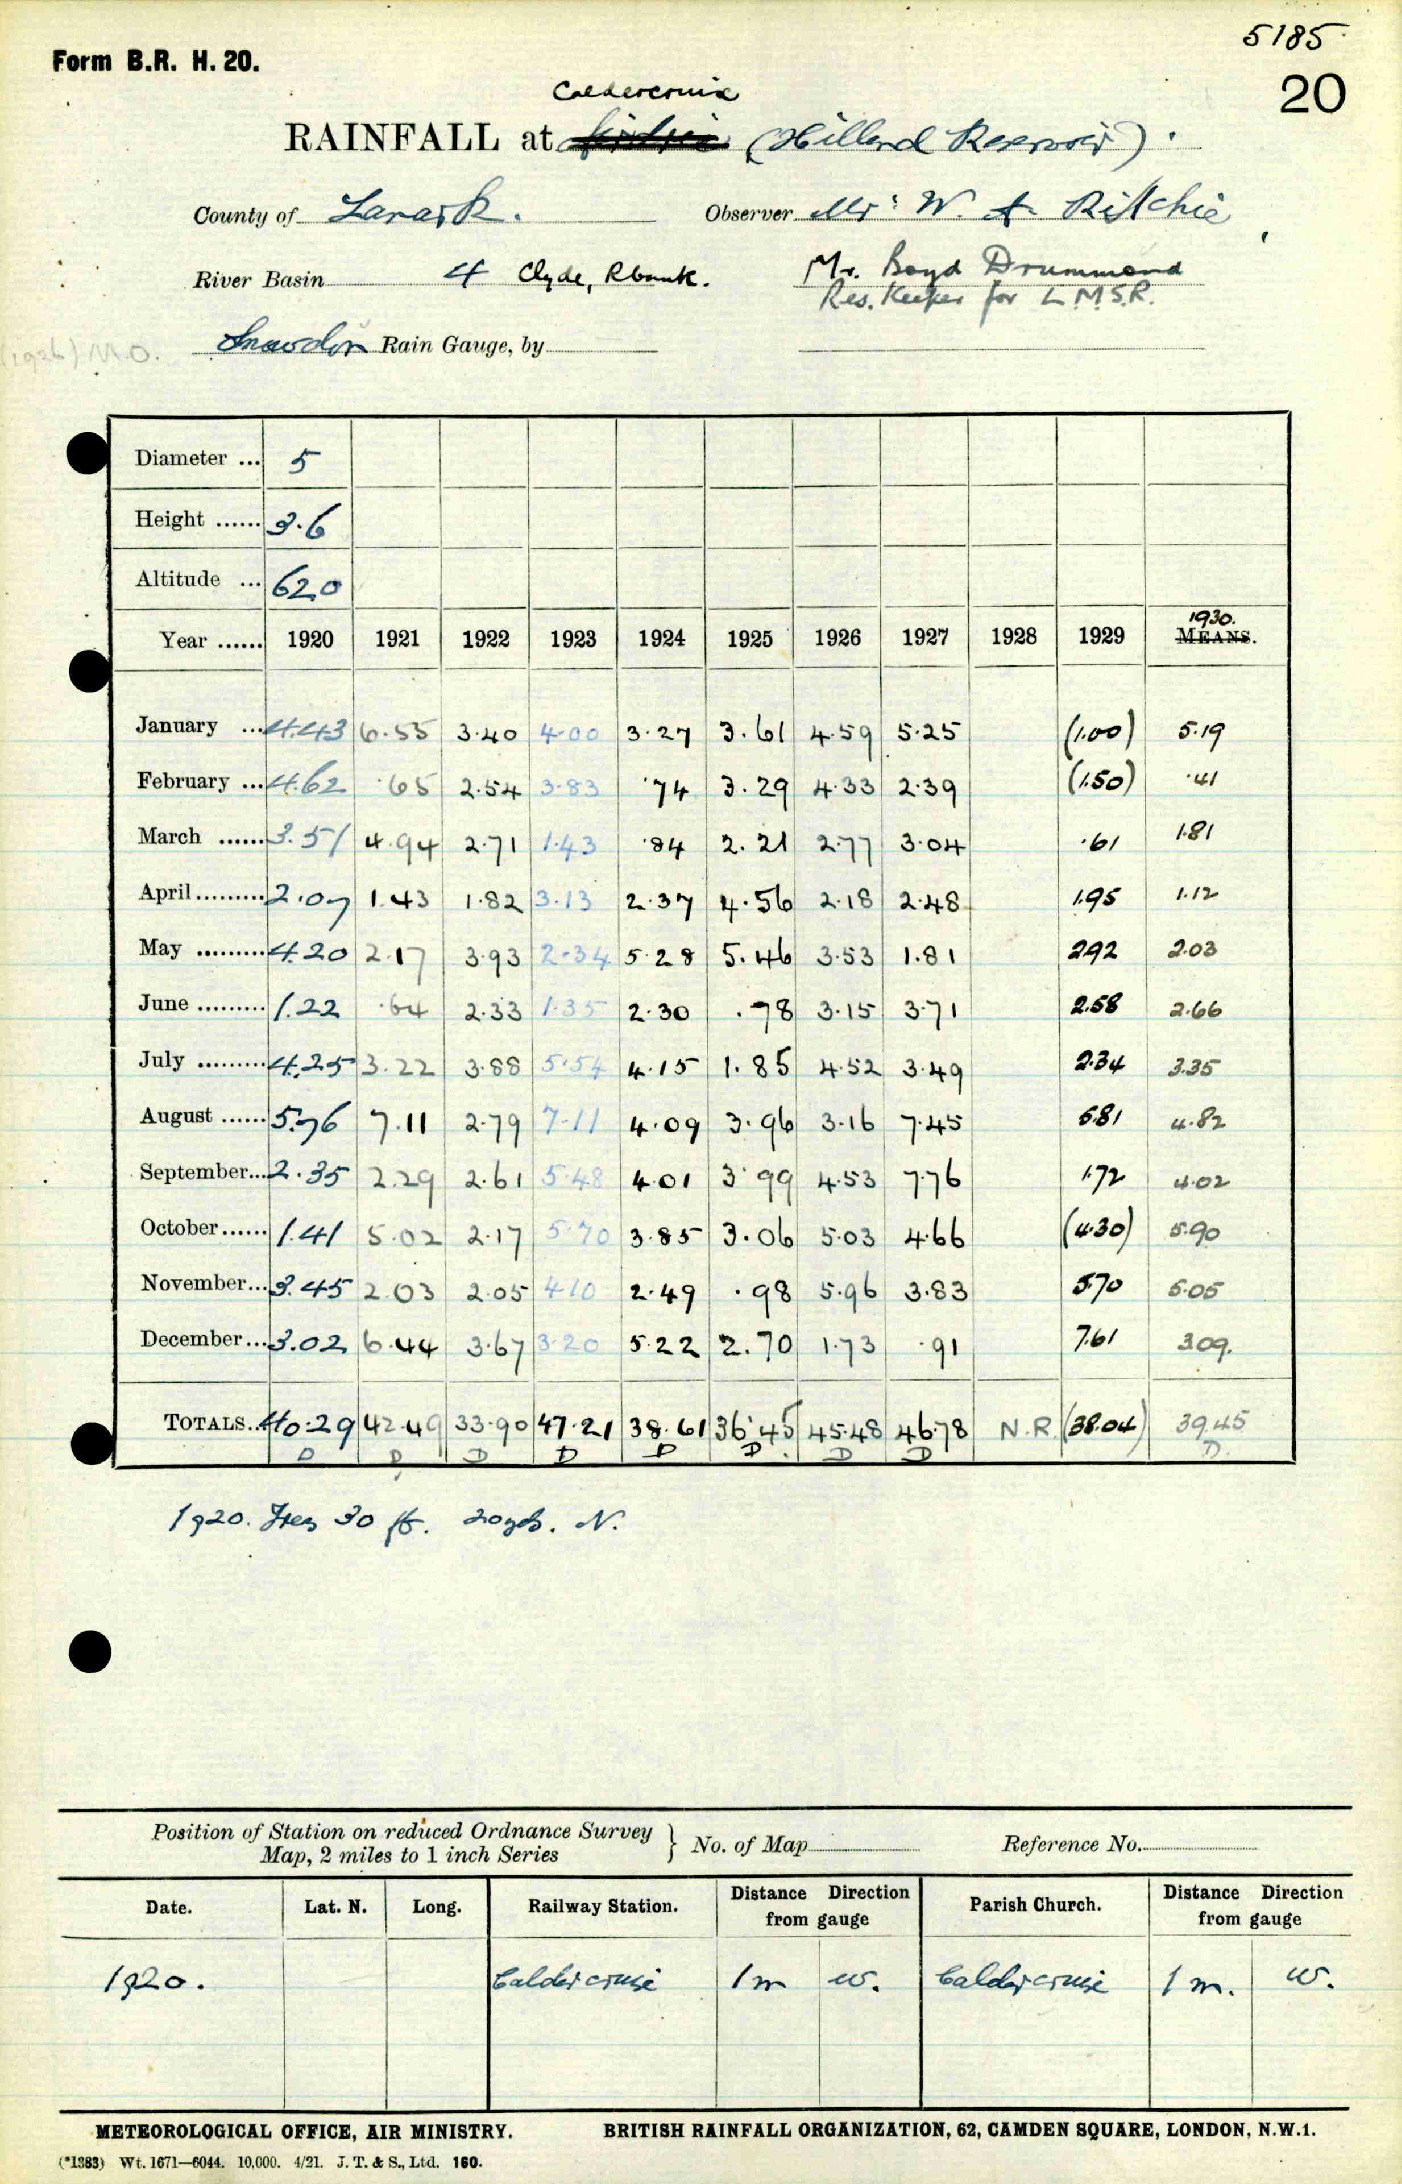 5185
Form B.R. H. 20.
20
Caldercruix
RAINFALL at (Hillend Reservoir).
County of Lanark. Observer Mr. W. A. Ritchie
River Basin 4 Clyde, R bank. Mr. Boyd Drummond
Res. Keeper for L.M.S.R.
(1926) M.O. Snowdon Rain Gauge, by
Diameter ... 5
Height ...... 3.6
Altitude ... 620
1930.
Year ...... 1920 1921 1922 1923 1924 1925 1926 1927 1928 1929 MEANS.
January ... 4.43 6.55 3.40 4.00 3.27 3.61 4.59 5.25 (1.00) 5.19
February ... 4.62 .65 2.54 3.83 .74 3.29 4.33 2.39 (1.50) .41
March ...... 3.51 4.94 2.71 1.43 .84 2.21 2.77 3.04 .61 1.81
April......... 2.07 1.43 1.82 3.13 2.37 4.56 2.18 2.48 1.95 1.12
May ......... 4.20 2.17 3.93 2.34 5.28 5.46 3.53 1.81 2.92 2.03
June ......... 1.22 .64 2.33 1.35 2.30 .78 3.15 3.71 2.58 2.66
July ......... 4.25 3.22 3.88 5.54 4.15 1.85 4.52 3.49 2.34 3.35
August ...... 5.76 7.11 2.79 7.11 4.09 3.96 3.16 7.45 5.81 4.82
September... 2.35 2.29 2.61 5.48 4.01 3.99 4.53 7.76 1.72 4.02
October...... 1.41 5.02 2.17 5.70 3.85 3.06 5.03 4.66 (4.30) 5.90
November... 3.45 2.03 2.05 4.10 2.49 .98 5.96 3.83 5.70 5.05
December... 3.02 6.44 3.67 3.20 5.22 2.70 1.73 .91 7.61 3.09.
TOTALS.. 40.29 42.49 33.90 47.21 38.61 36.45 45.48 46.78 N.R. (38.04) 39.45
D D D D D D D D D.
1920. Trees 30 ft. 20 yds. N.
Position of Station on reduced Ordnance Survey
Map, 2 miles to 1 inch Series } No. of Map Reference No.
Date. Lat. N. Long. Railway Station. Distance Direction from gauge Parish Church. Distance Direction from gauge
1920. Caldercruix 1 m W. Caldercruix 1 m. W.
METEOROLOGICAL OFFICE, AIR MINISTRY. BRITISH RAINFALL ORGANIZATION, 62, CAMDEN SQUARE, LONDON, N.W.1.
(*1383) Wt. 1671—6044. 10,000. 4/21. J. T. & S., Ltd. 160.